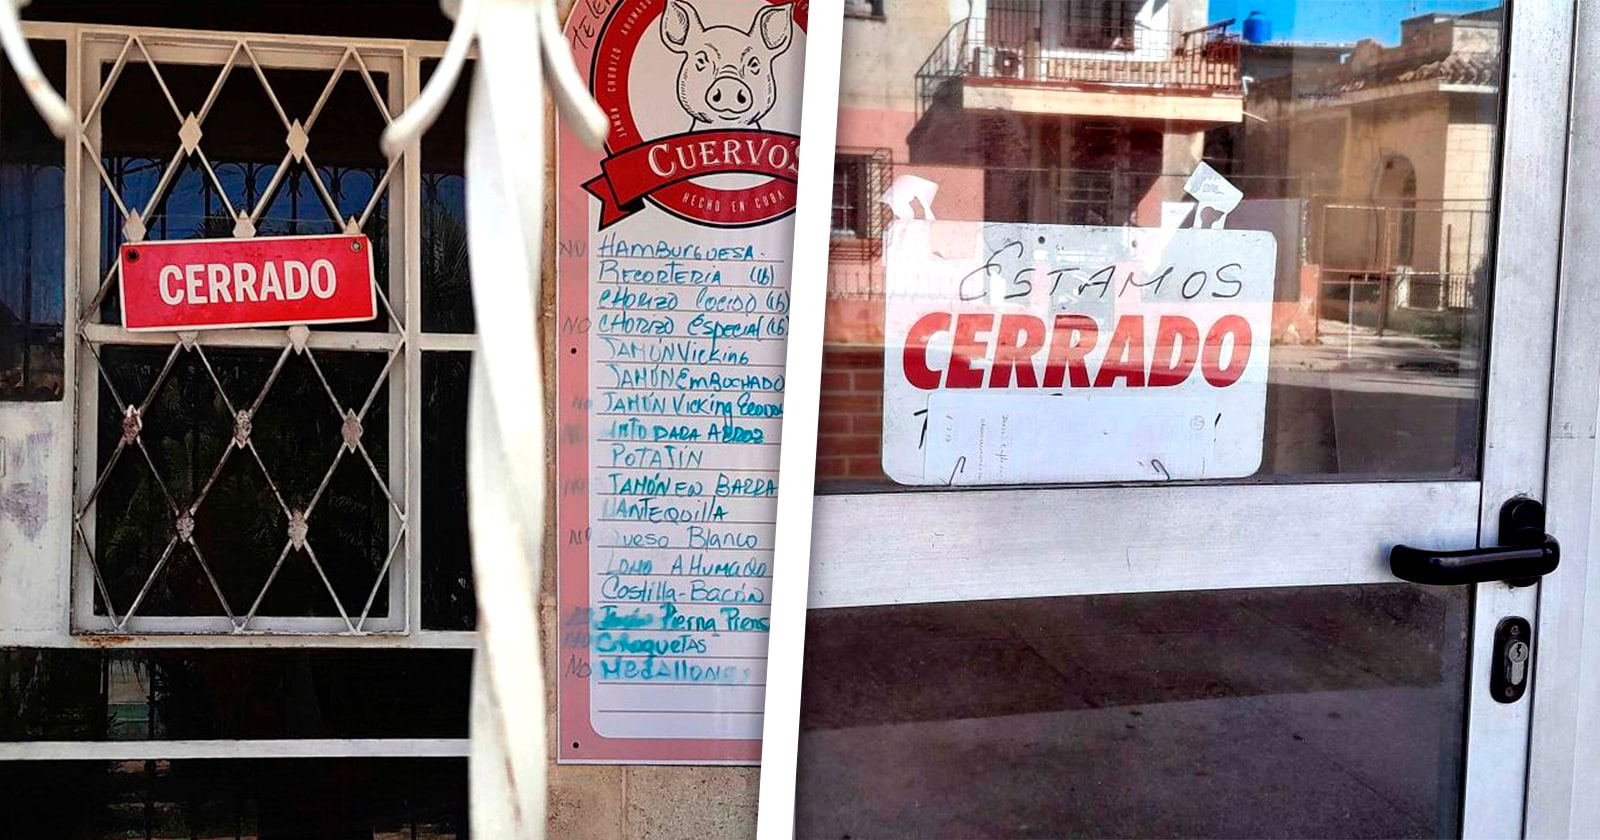 CERRADO
JAMÓN CHORIZO AHUMADO
CUERVO'S
HECHO EN CUBA
NO HAMBURGUESA.
RECORTERÍA (lb)
CHORIZO COCIDO (lb)
NO CHORIZO ESPECIAL (lb)
JAMÓN Vicking
JAMÓN EMBUCHADO
NO JAMÓN Vicking
POTATIN
NO JAMÓN EN BARRA
MANTEQUILLA
NO Queso Blanco
LOMO AHUMADO
Costilla-Bacón
Pierna
NO CROQUETAS
NO MEDALLONES
ESTAMOS
CERRADO